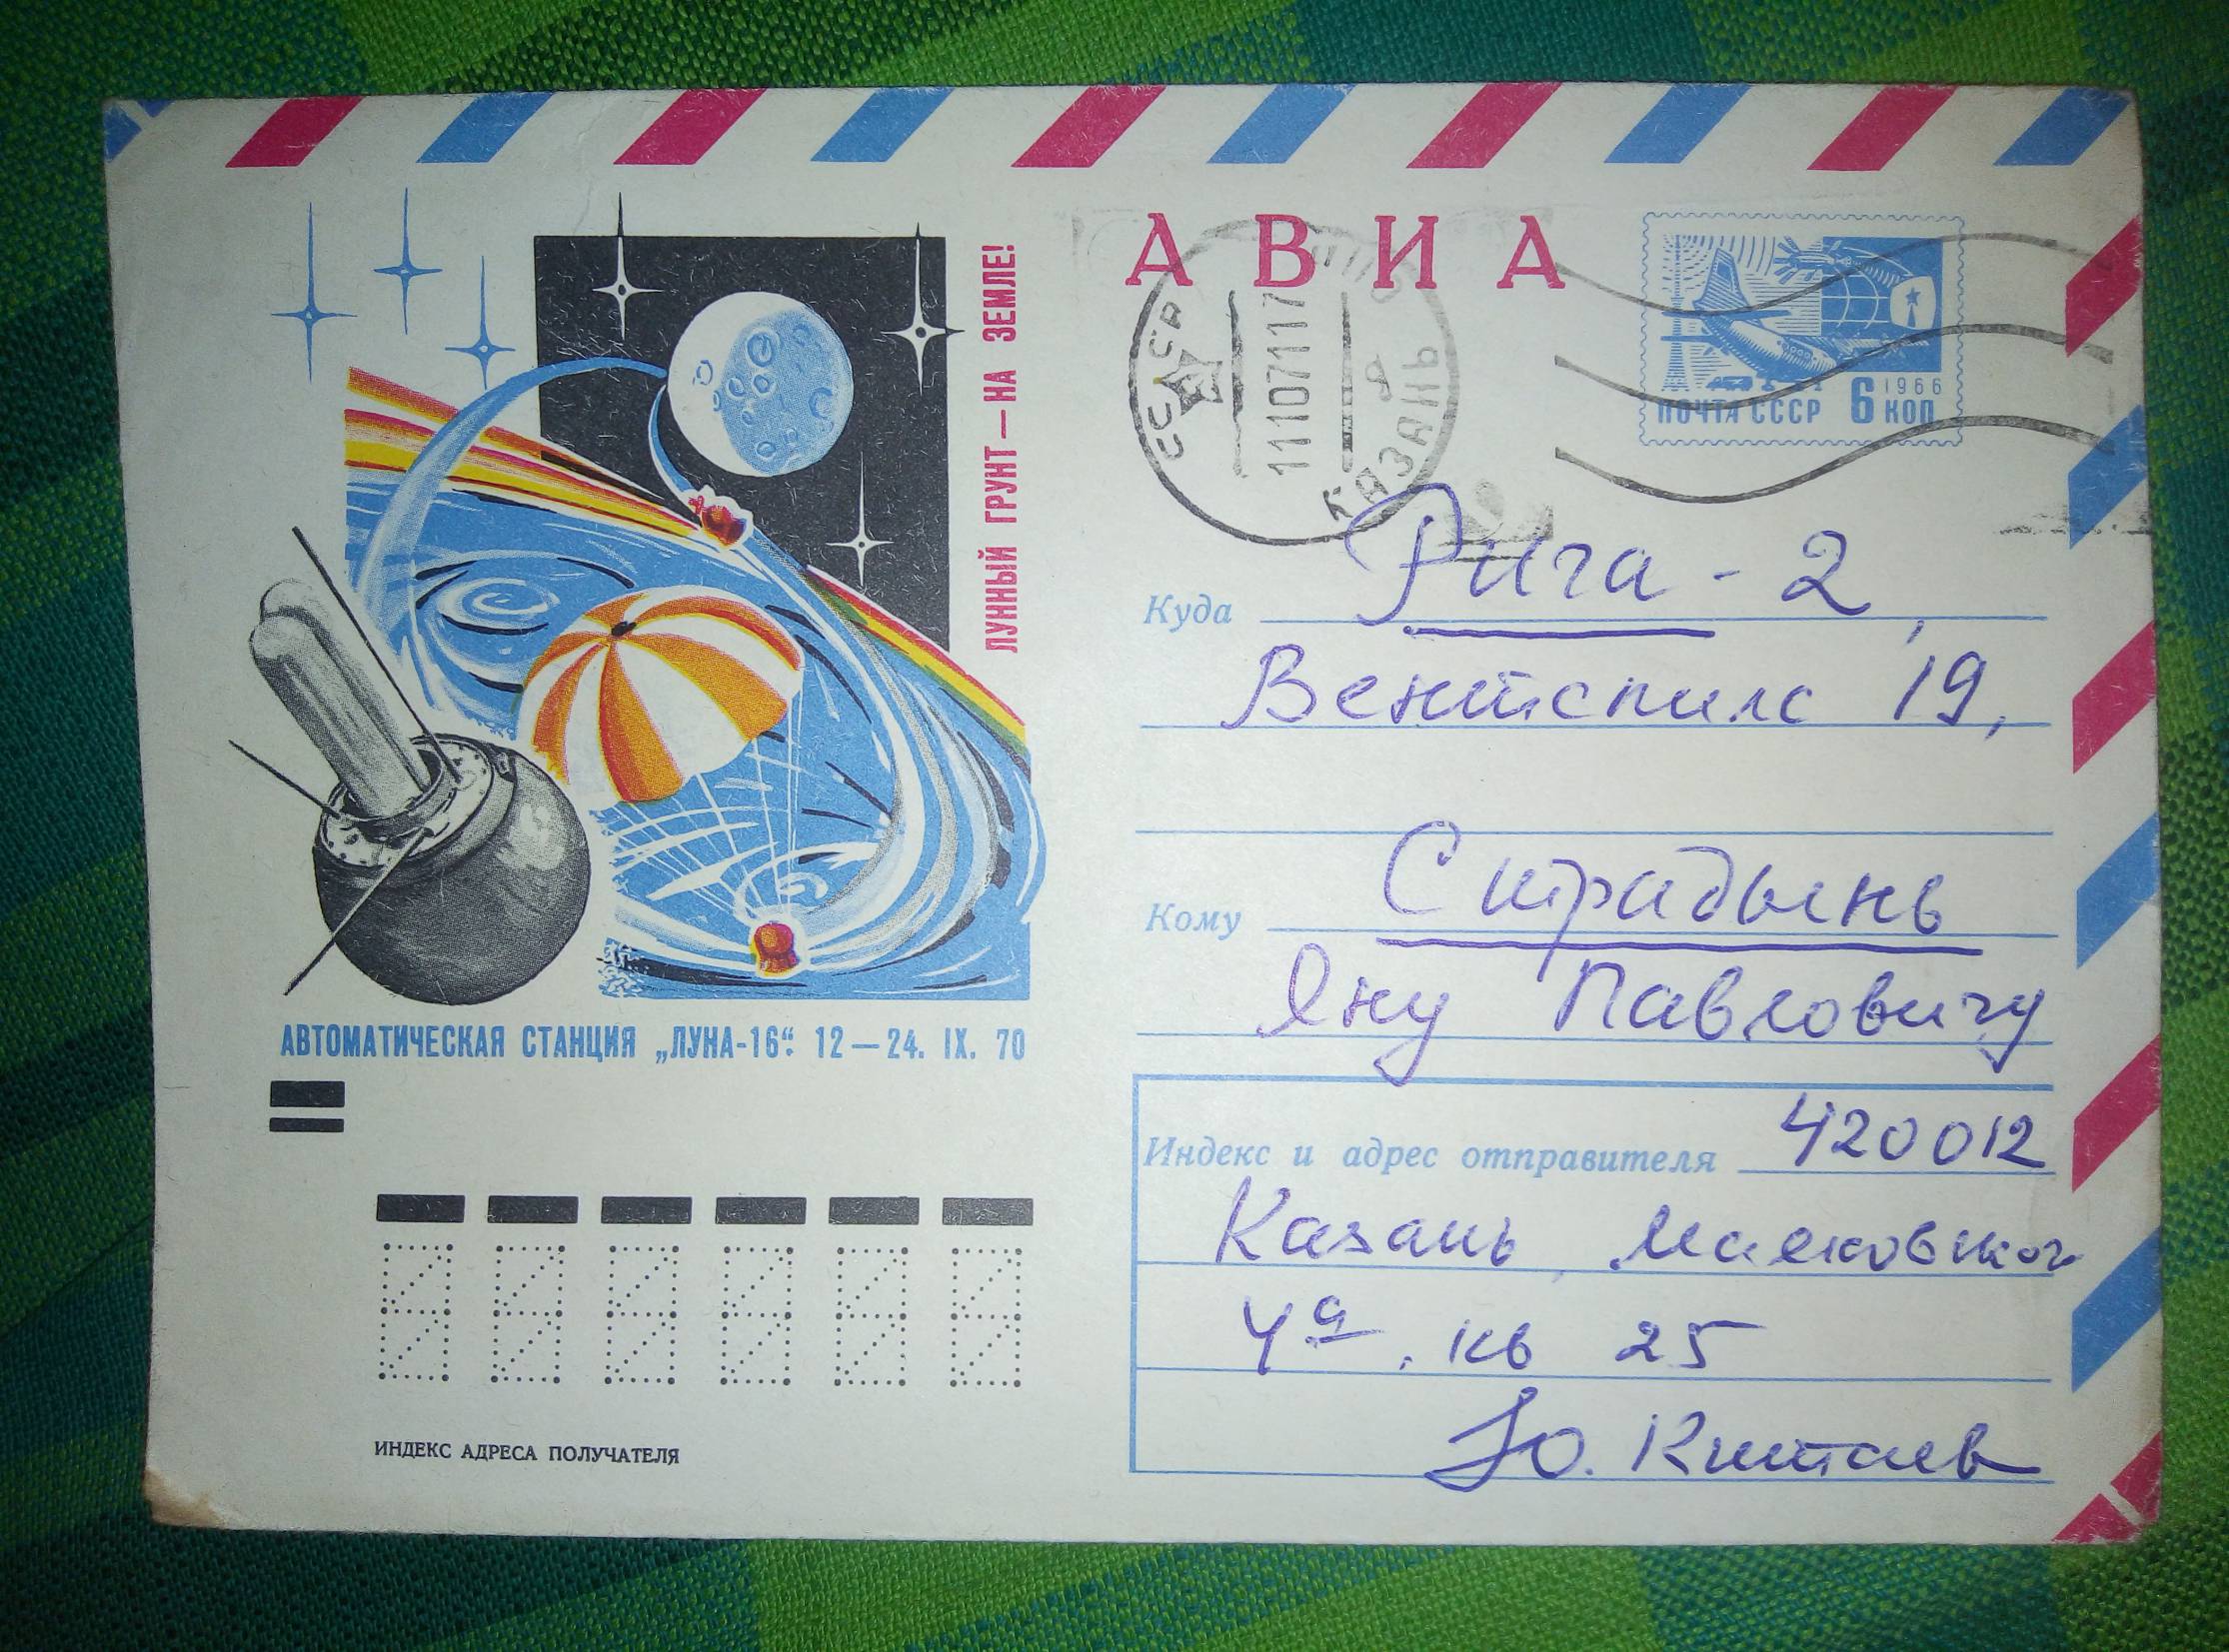 ЛУННЫЙ ГРУНТ — НА ЗЕМЛЕ!
АВТОМАТИЧЕСКАЯ СТАНЦИЯ „ЛУНА-16“. 12—24. IX. 70
ИНДЕКС АДРЕСА ПОЛУЧАТЕЛЯ
АВИА
СССР
11107117
КАЗАНЬ
1966
ПОЧТА СССР 6 КОП
Куда Рига - 2,
Вентспилс 19,
Кому Страдынь
Яну Павловичу
Индекс и адрес отправителя 420012
Казань, Маяковского
4а, кв 25
Ю. Китаев